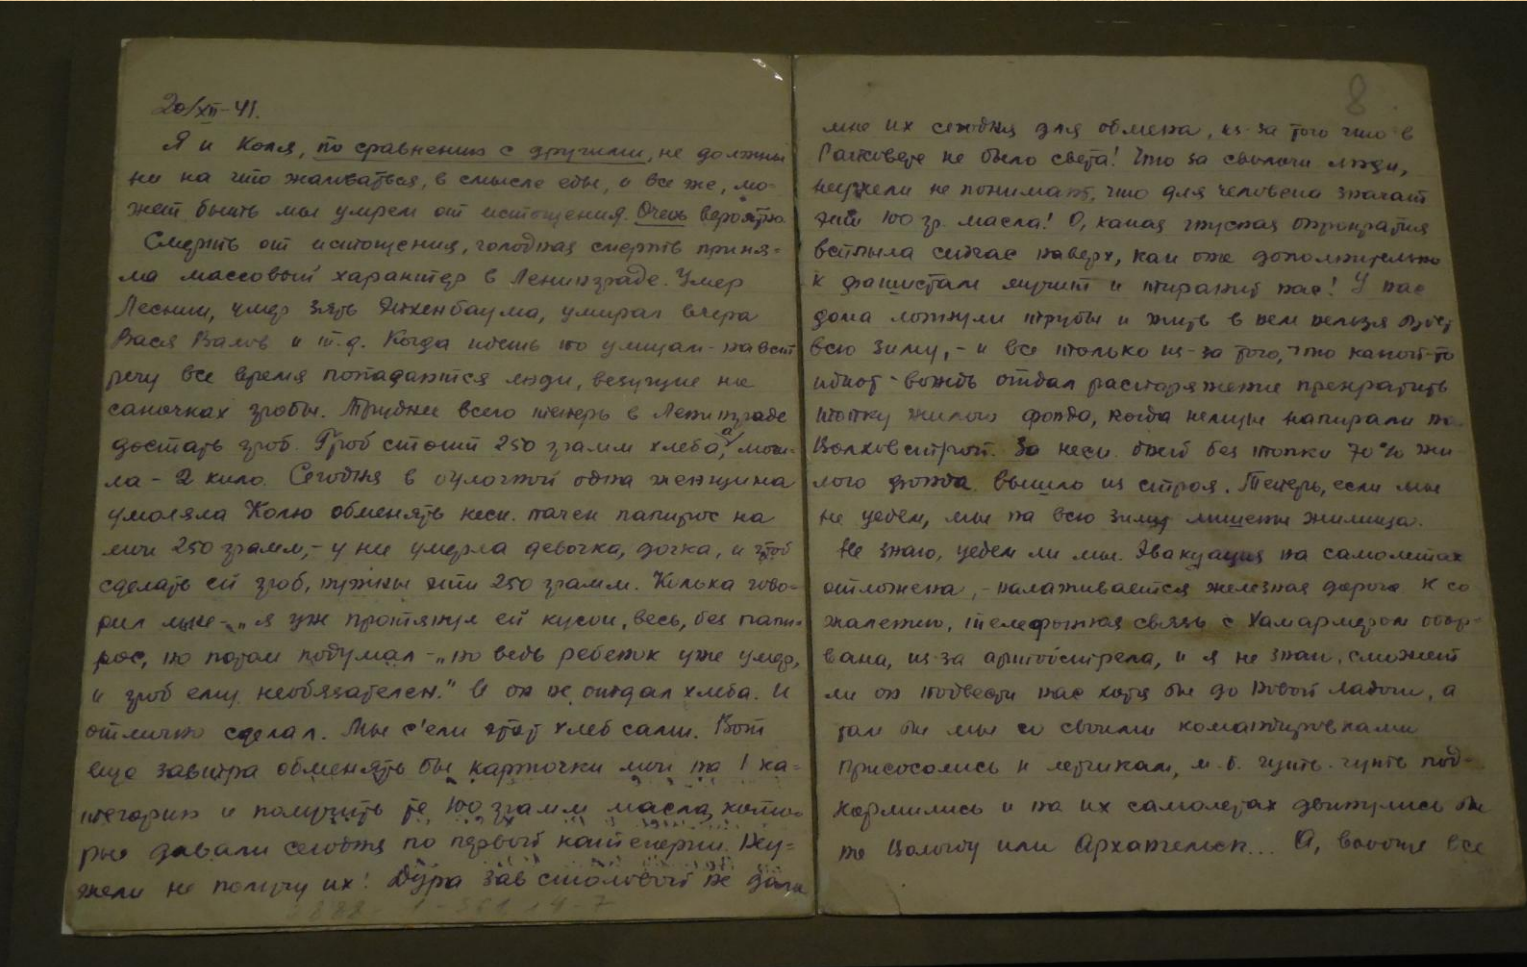 20/XII-41.
Я и Коля, по сравнению с другими, не должны
ни на что жаловаться, в смысле еды, и все же, мо-
жет быть мы умрем от истощения. Очень вероятно.
Смерть от истощения, голодная смерть приня-
ла массовый характер в Ленинграде. Умер
Лесник, умер зять Эйхенбаума, умирал вчера
Вася Валов и т.д. Когда идешь по улицам - навст
речу все время попадаются люди, везущие на
саночках гробы. Труднее всего теперь в Ленинграде
достать гроб. Гроб стоит 250 грамм хлеба, моги-
ла - 2 кило. Сегодня в булочной одна женщина
умоляла Колю обменять неск. пачек папирос на
мои 250 грамм, - у нее умерла девочка, дочка, и чтоб
сделать ей гроб, нужны эти 250 грамм. Колька гово-
рил мне - „я уж протянул ей кусок, весь, без папи-
рос, но потом подумал - „но ведь ребенок уже умер,
и гроб ему необязателен." И он не отдал хлеба. И
отлично сделал. Мы с'ели этот хлеб сами. Вот
еще завтра обменять бы карточки мои на 1 ка-
тегорию и получить те 100 грамм масла, кото-
рые давали сегодня по первой категории. Неу-
жели не получу их! Дура зав столовой не дала
2888-1-361,14-7
8
мне их сегодня для обмена, из-за того что в
Райсовете не было света! Что за сволочи люди,
неужели не понимают, что для человека значат
эти 100 гр. масла! О, какая гнусная бюрократия
всплыла сейчас наверх, как она дополнительно
к фашистам мучит и тиранит нас! У нас
дома лопнули трубы и жить в нем нельзя будет
всю зиму, - и все только из-за того, что какой-то
идиот - вождь отдал распоряжение прекратить
топку жилого фонда, когда немцы напирали на
Волховстрой. За неск. дней без топки 70% жи-
лого фонда вышло из строя. Теперь, если мы
не уедем, мы на всю зиму лишены жилища.
Не знаю, уедем ли мы. Эвакуация на самолетах
отложена, - налаживается железная дорога. К со
жалению, телефонная связь с Хамармером обор-
вана, из-за артобстрела, и я не знаю, сможет
ли он подвезти нас хотя бы до Новой Ладоги, а
там бы мы со своими командировками
присосались к летчикам, м.б. чуть-чуть под-
кормились и на их самолетах двинулись бы
на Вологду или Архангельск... А, вообще все